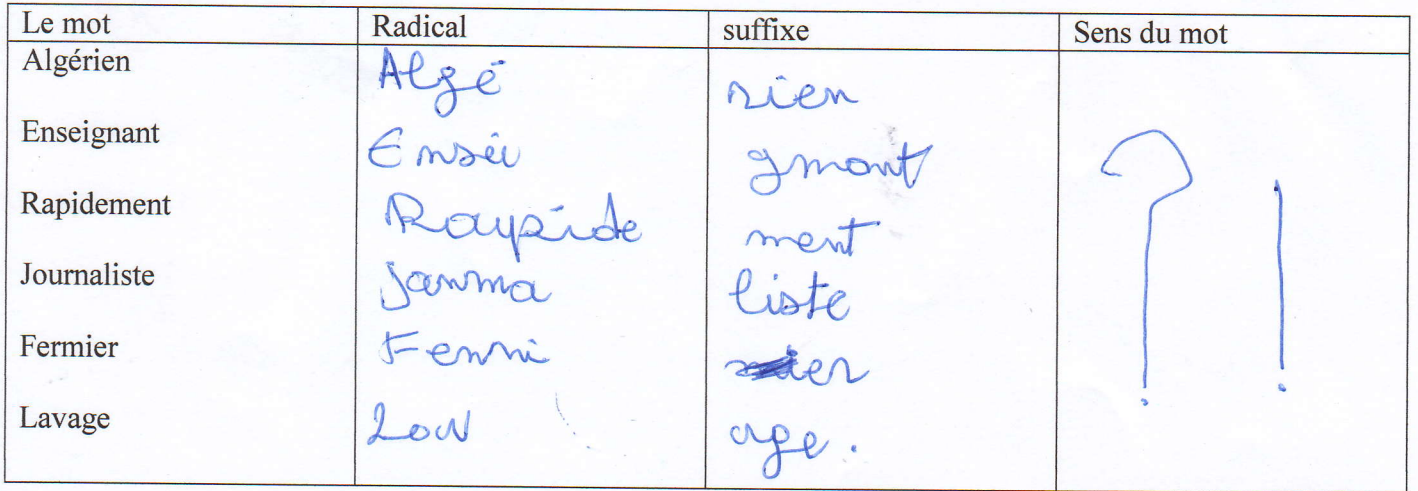 Le mot Radical suffixe Sens du mot
Algérien Algé rien
Enseignant Ensei gnant
Rapidement Raypide ment
Journaliste Journa liste
Fermier Fermi er
Lavage Lav age.
? !